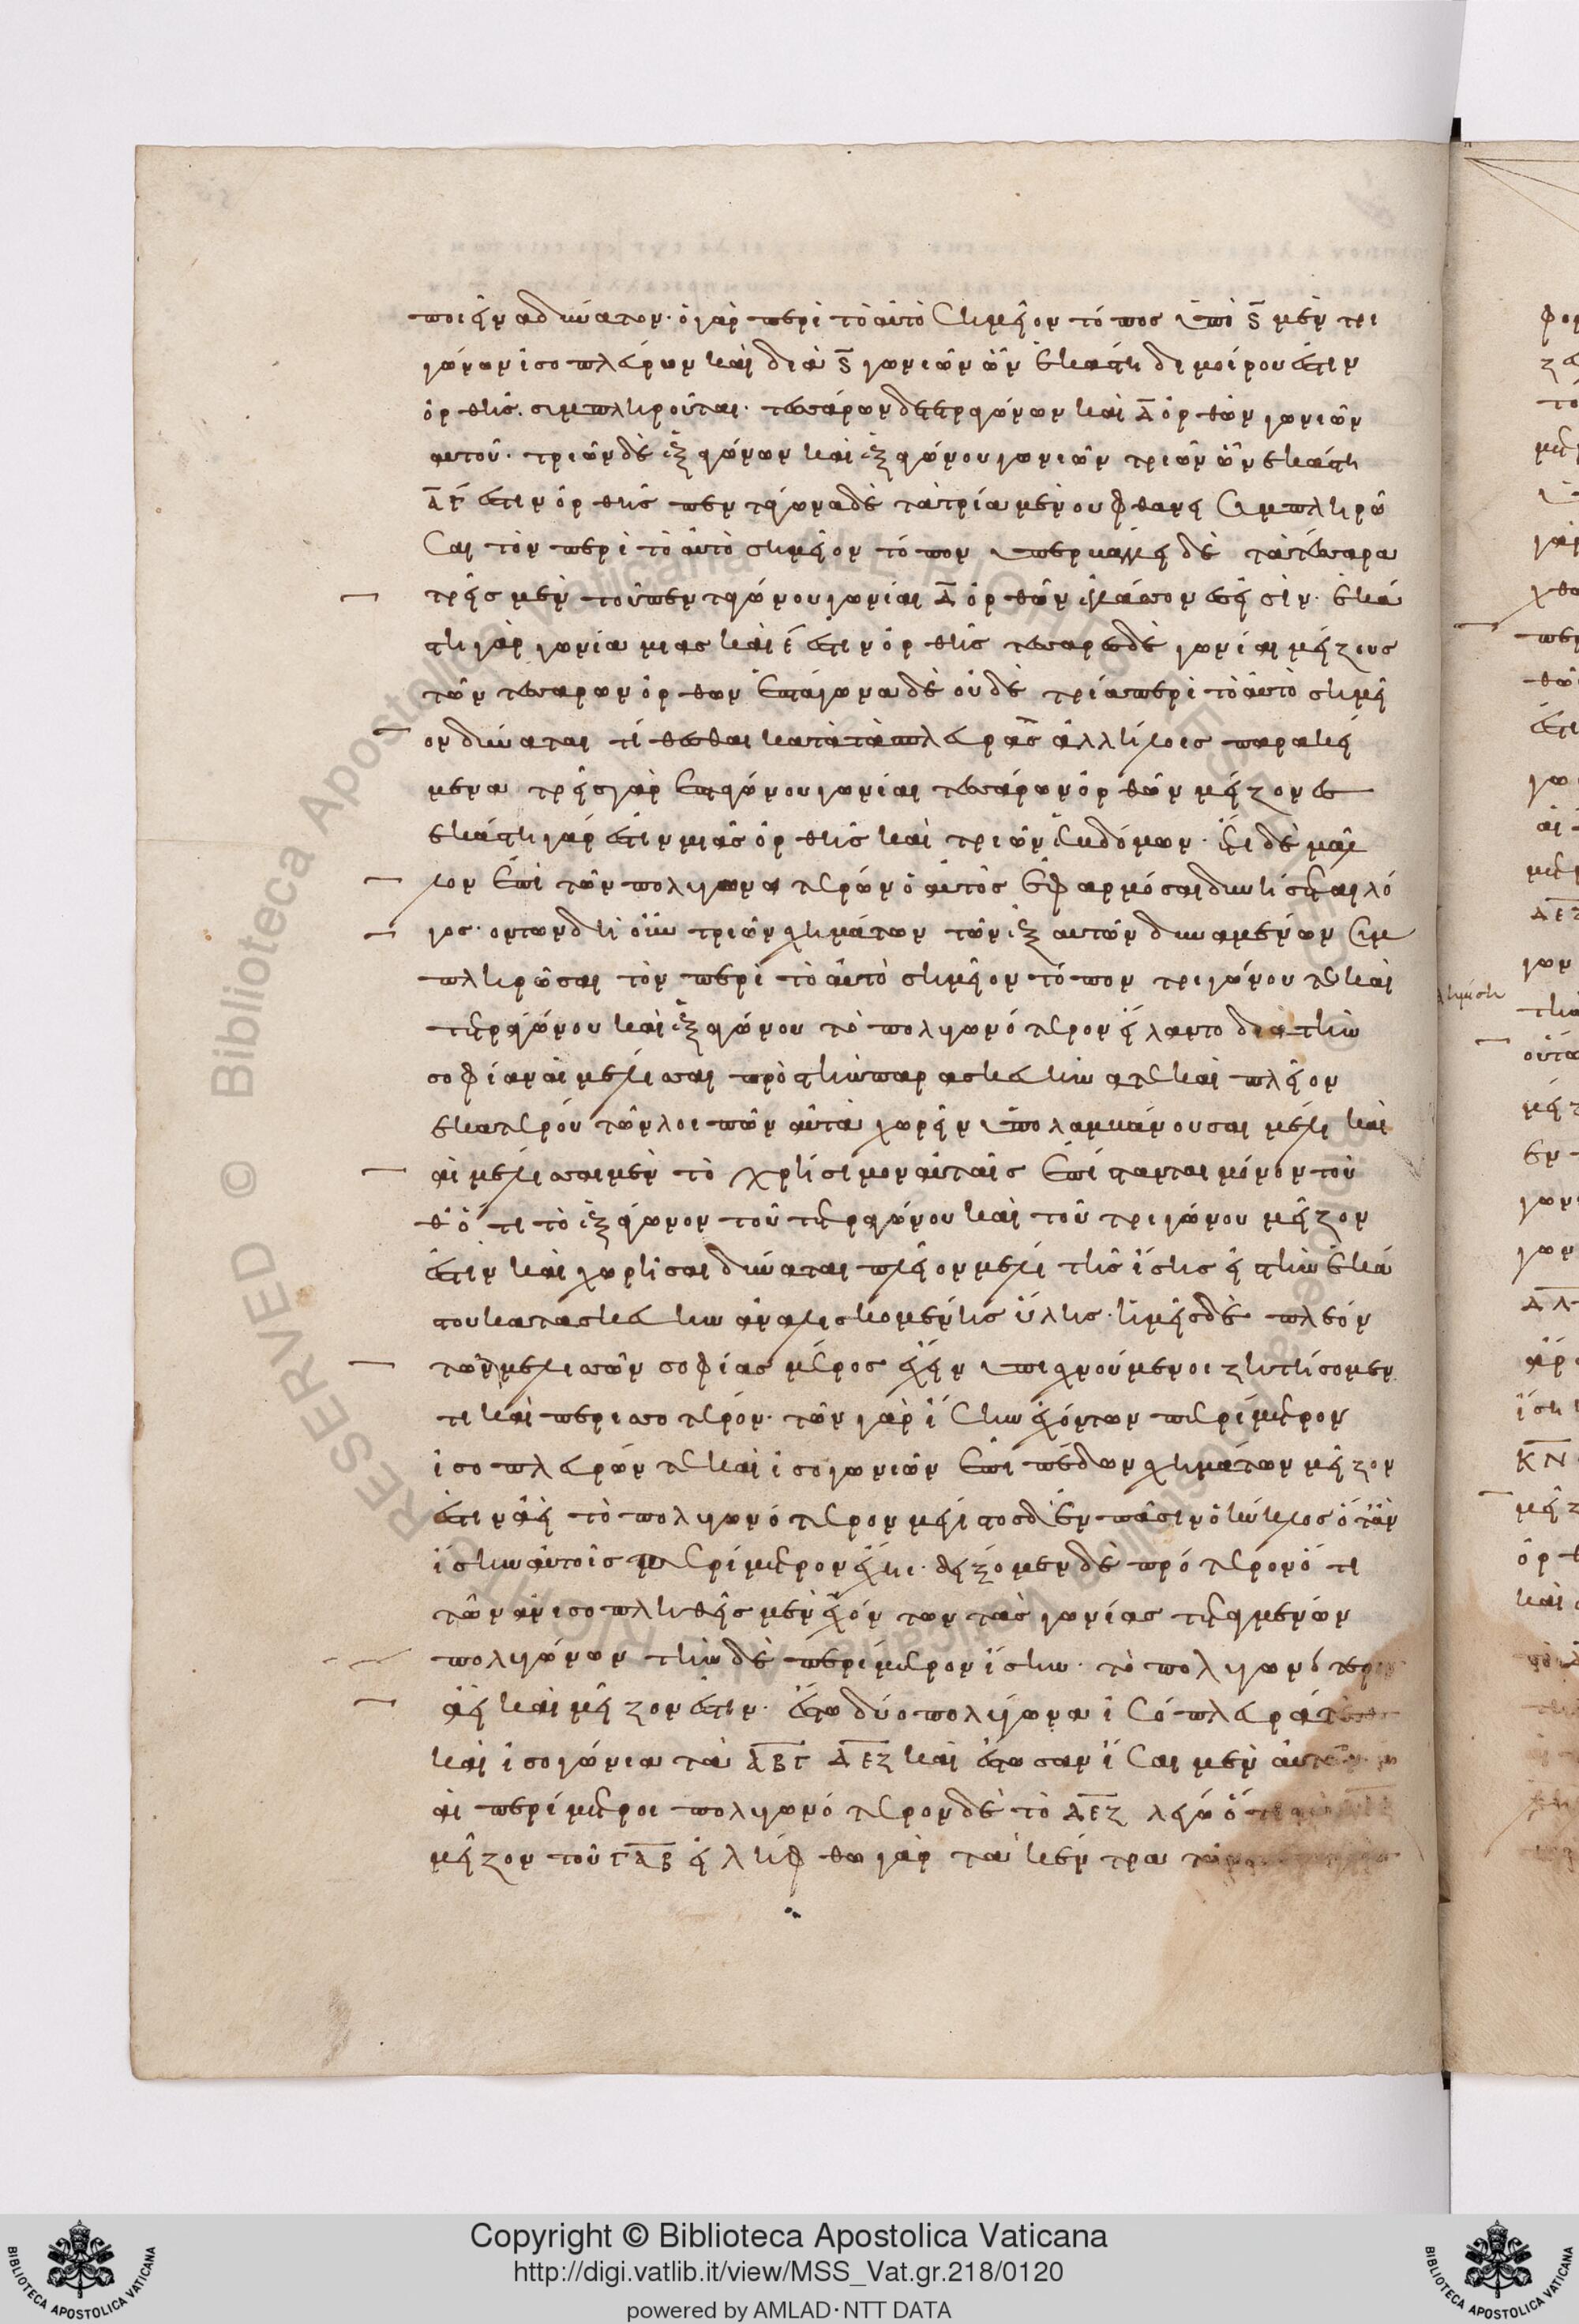 ποιεῖν ἀδύνατον· ὁ γὰρ περὶ τὸ αὐτὸ σημεῖον τόπος ὑπὸ ϛ̅ μὲν τρι
γώνων ἰσοπλεύρων καὶ διὰ ϛ̅ γωνιῶν ὧν ἑκάστη διμοίρου ἐστιν
ὀρθῆς. συμπληροῦται· τεσσάρων δὲ τετραγώνων καὶ δ̅ ὀρθῶν γωνιῶν
αυτοῦ· τριῶν δὲ ἑξαγώνων καὶ ἑξαγώνου γωνιῶν τριῶν ὧν ἑκάστη
ἐστιν ὀρθῆς πεντάγωνα δὲ τὰ τρία μὲν ου φθανει συμπληρῶ
σαι τὸν περὶ τὸ αὐτὸ σημεῖον τόπον ὑπερβάλλει δὲ τὰ τέσσαρα
τρεῖς μὲν τοῦ πενταγώνου γωνίαι δ̅ ὀρθῶν ἐλάσσονες εἰσίν· ἑκά
στη γὰρ γωνία μιας καὶ ε ἐστιν ὀρθῆς τεσσαρες δὲ γωνίαι μείζους
τῶν τεσσαρων ὀρθων ἑπτάγωνα δὲ οὐδὲ τρία περὶ τὸ αὐτὸ σημεῖ
ον δύναται τίθεσθαι κατὰ τὰ πλευρὰς ἀλλήλοις παρακεί
μενα τρεῖς γὰρ ἑπταγώνου γωνίαι τεσσάρων ὀρθῶν μείζονες
ἑκάστη γάρ ἐστιν μιᾶς ὀρθῆς καὶ τριῶν ἑβδόμων· ἔτι δὲ μᾶλ
λον ἐπὶ τῶν πολυγωνοτέρων ὁ αὐτὸς ἐφαρμόσαι δυνήσεται λό
γος· οντων δὴ οὖν τριῶν σχημάτων τῶν ἐξ αυτῶν δυναμένων συμ
πληρῶσαι τὸν περὶ τὸ αὐτὸ σημεῖον τόπον τριγώνου τε καὶ
τετραγώνου καὶ ἑξαγώνου τὸ πολυγωνότερον εἵλαντο διὰ τὴν
σοφίαν αἱ μέλισσαι πρὸς τὴν παρασκευὴν ἅτε καὶ πλεῖον
ἑκατέρου τῶν λοιπῶν αὐτὰ χωρεῖν ὑπολαμβάνουσαι μέλι καὶ
αἱ μέλισσαι μὲν τὸ χρήσιμον αὐταῖς ἐπίστανται μόνον τοῦ
θ᾽ ὅτι τὸ ἑξάγωνον τοῦ τετραγώνου καὶ τοῦ τριγώνου μεῖζον
ἐστιν καὶ χωρῆσαι δύναται πλεῖον μέλι τῆς ἴσης εἰς τὴν ἑκά
στου κατασκευὴν ἀναλισκομένης ὕλης· ἡμεῖς δὲ πλέον
τῶν μελισσῶν σοφίας μέρος ἔχειν ὑπισχνούμενοι ζητήσομεν
τι καὶ περισσότερον· τῶν γὰρ ἴσην ἐχόντων περίμετρον
ἰσοπλεύρων τε καὶ ἰσογωνιῶν ἐπιπέδων σχημάτων μεῖζον
ἐστιν ἀεὶ τὸ πολυγωνότερον μέγιστος δ᾽ ἐν πᾶσιν ὁ κύκλος ὅταν
ἴσην αὐτοῖς περίμετρον ἔχηι· δείξομεν δὲ πρότερον ὅτι
τῶν ἀνισοπληθεῖς μὲν ἐχόντων τὰς γωνίας τεταγμένων
πολυγώνων τὴν δὲ περίμετρον ἴσην· τὸ πολυγωνότερον
ἀεὶ καὶ μεῖζον ἐστιν· ἔστω δύο πολύγωνα ἰσόπλευρά τε
καὶ ἰσογώνια τὰ ΑΒΓ ΔΕΖ καὶ ἔστωσαν ἴσαι μὲν αὐτῶν
αἱ περίμετροι πολυγωνότερον δὲ τὸ ΔΕΖ λέγω ὅτι
μεῖζον τοῦ ΓΑΒ εἰλήφθω γὰρ τὰ κέντρα